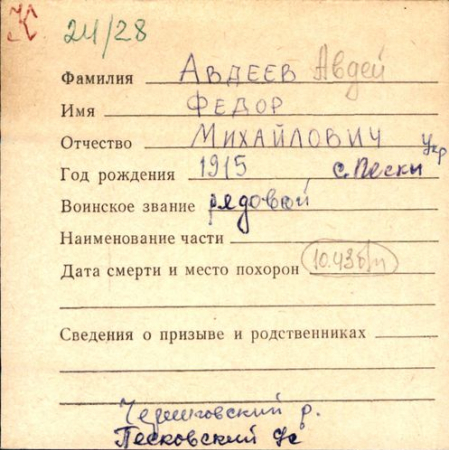 К 24/28
Фамилия АВДЕЕВ Авдей
Имя ФЕДОР
Отчество МИХАЙЛОВИЧ Укр
Год рождения 1915 с. Пески
Воинское звание рядовой
Наименование части
Дата смерти и место похорон 10.43 б/п
Сведения о призыве и родственниках
р.
Песковский с/с